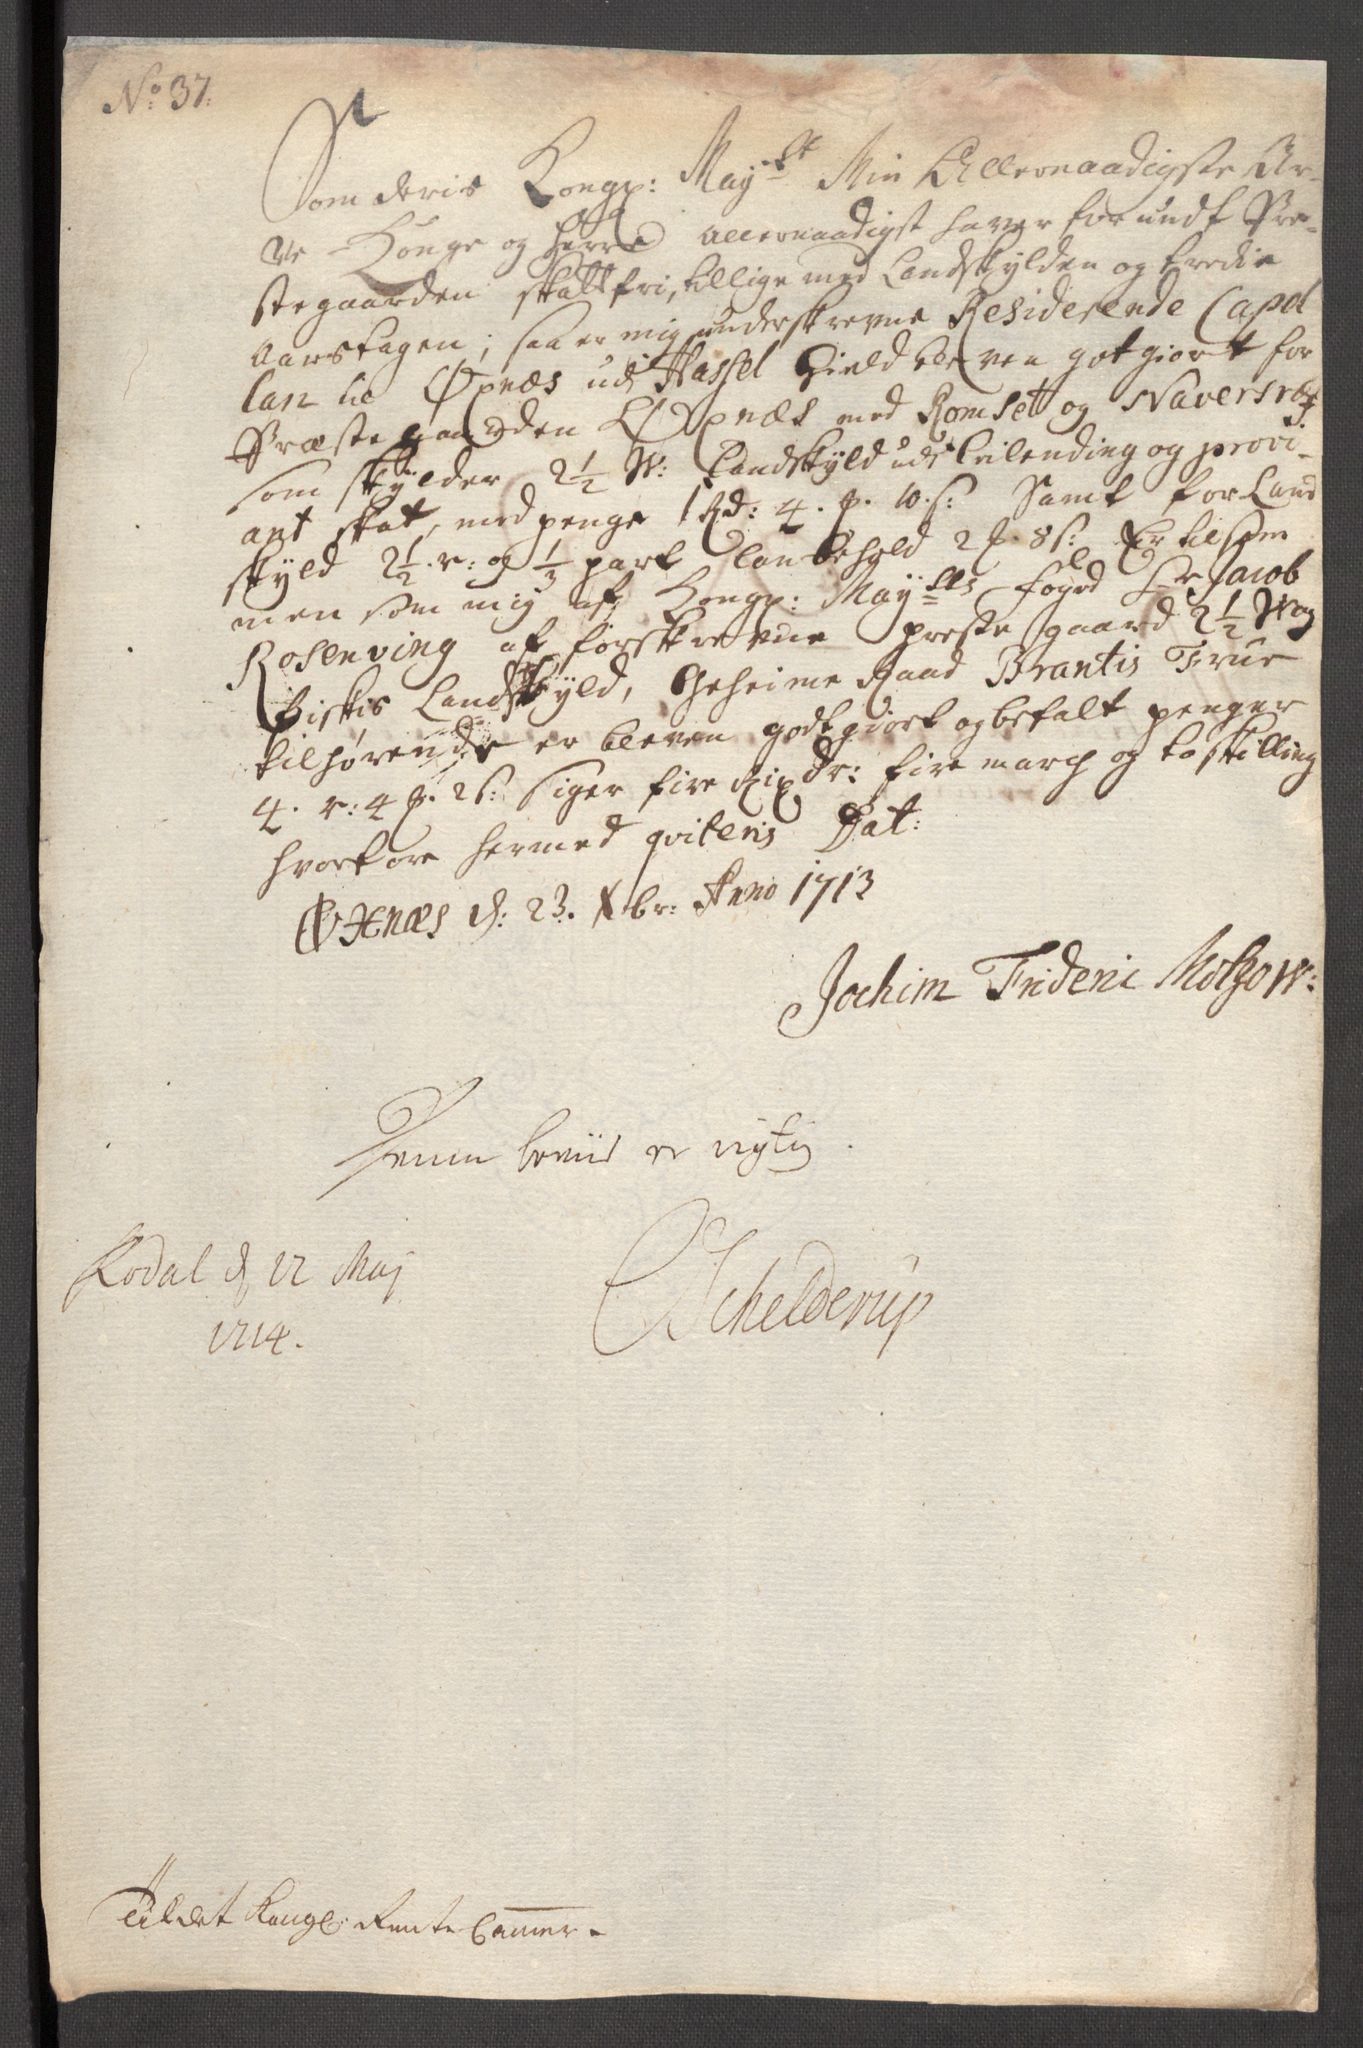 No: 37:
Som deris Kongl: Mayst: Min Allernaadigste Ar-
ve Konge og herre Allernaadigst haver forundt Pre-
stegaarden skatt fri, tillige med Landskylden og tredie
Aarstagen; saa er mig underskrevne Residerende Capel
lan til Øxnæs udi Hassel Gield bleven gotgiort for
Præstegaarden Øxnæs med Romset og Naversræt
som skylder 2½ W: Landskyld udi Leilending og provi-
ant skat, med penge 1 Rd: 4. ƒ. 10. s: Samt for Land
skyld 2½. r: og ⅓ part landbohold 2 ƒ. 8 s: Er tilsam
men som mig af Kongl: Mayslls foged Sr Jacob
Rosenving af forskrevne preste gaard 2½ Wog
fiskis Landskyld, Geheime Raad Brantis Frue
tilhørende er bleven godtgiort og betalt penger
4. r: 4 ƒ. 2 s: siger fire Rixdr: fire march og to skilling
hvorfore hermed qviteris Dat:
Øxnæs d: 23. Xbr: Anno 1713
Jochim Frideric Motzow:
Denne beviis er rigtig.
Lodal d 22 Maj
1714.
Schelderup
Til det Kongl: Rente Cammer.